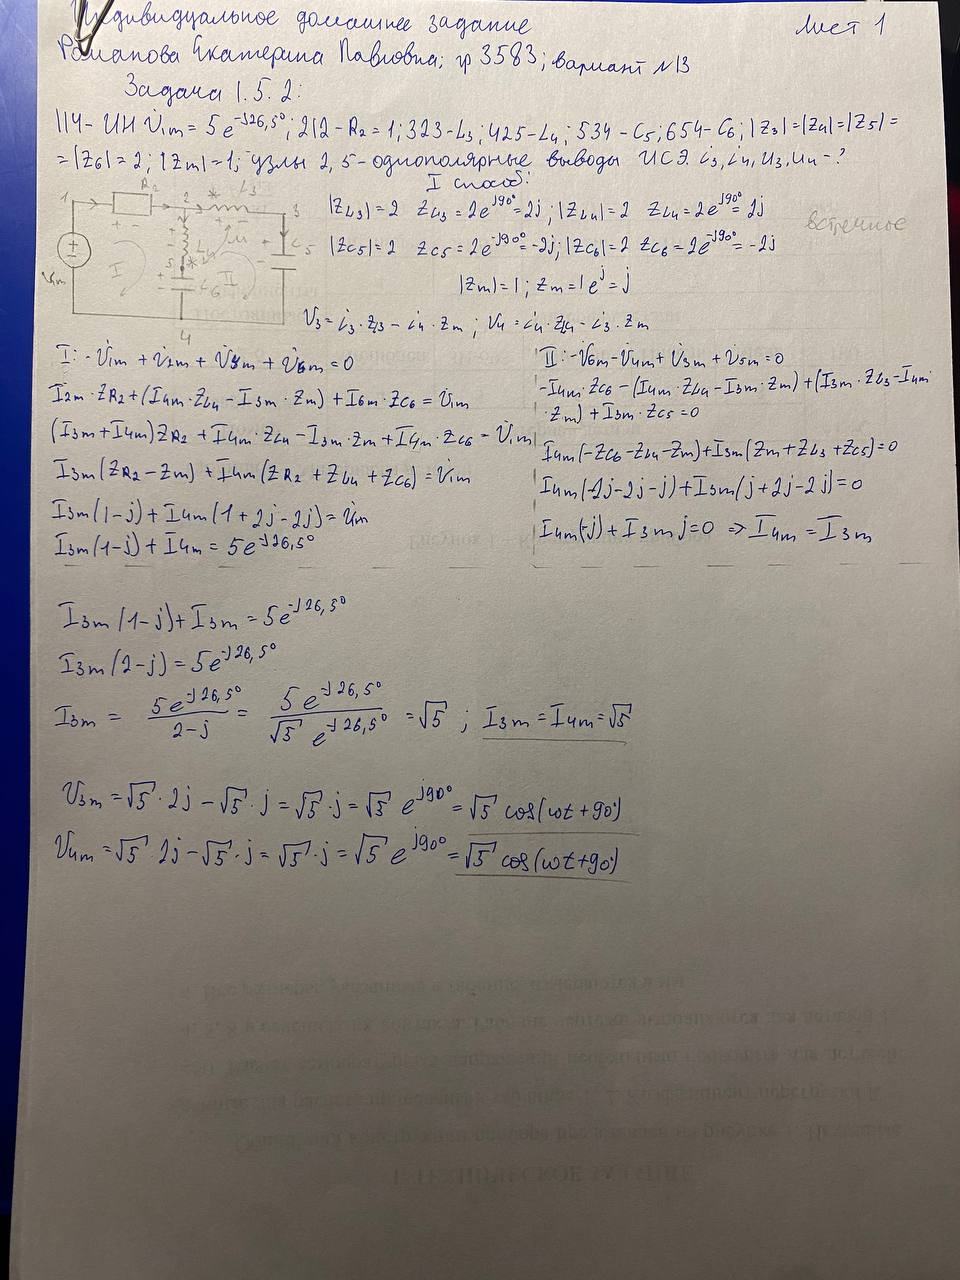 Индивидуальное домашнее задание Лист 1
Романова Екатерина Павловна; гр 3583; вариант №13
Задача 1.5.2:
114-ИН U̇1m = 5e^-j26,5°; 212-R2 = 1; 323-L3; 425-L4; 534-C5; 654-C6; |Z3|=|Z4|=|Z5|=
=|Z6|=2; |Zm|=1; узлы 2, 5-однополярные выводы ИСЭ. i3, i4, u3, u4 - ?
I способ:
1 R2 2 L3 3
M
I L4 II C5
5 C6
U1m
4
|ZL3|=2 ZL3=2e^j90°=2j; |ZL4|=2 ZL4=2e^j90°=2j
встречное
|ZC5|=2 ZC5=2e^-j90°=-2j; |ZC6|=2 ZC6=2e^-j90°=-2j
|Zm|=1; Zm=1e^j=j
U3=i3·ZL3-i4·Zm; U4=i4·ZL4-i3·Zm
I: -U̇1m+U̇2m+U̇4m+U̇6m=0
I2m·ZR2+(I4m·ZL4-I3m·Zm)+I6m·ZC6=U̇1m
(I3m+I4m)ZR2+I4m·ZL4-I3m·Zm+I4m·ZC6=U̇1m
I3m(ZR2-Zm)+I4m(ZR2+ZL4+ZC6)=U̇1m
I3m(1-j)+I4m(1+2j-2j)=U̇m
I3m(1-j)+I4m=5e^-j26,5°
II: -U̇6m-U̇4m+U̇3m+U̇5m=0
-I4m·ZC6-(I4m·ZL4-I3m·Zm)+(I3m·ZL3-I4m·
·Zm)+I3m·ZC5=0
I4m(-ZC6-ZL4-Zm)+I3m(Zm+ZL3+ZC5)=0
I4m(-2j-2j-j)+I3m(j+2j-2j)=0
I4m(-j)+I3m j=0 ⇒ I4m=I3m
I3m(1-j)+I3m=5e^-j26,5°
I3m(2-j)=5e^-j26,5°
I3m = 5e^-j26,5° / 2-j = 5e^-j26,5° / √5 e^-j26,5° = √5; I3m=I4m=√5
U3m=√5·2j-√5·j=√5·j=√5 e^j90°=√5 cos(ωt+90°)
U4m=√5·2j-√5·j=√5·j=√5 e^j90°=√5 cos(ωt+90°)